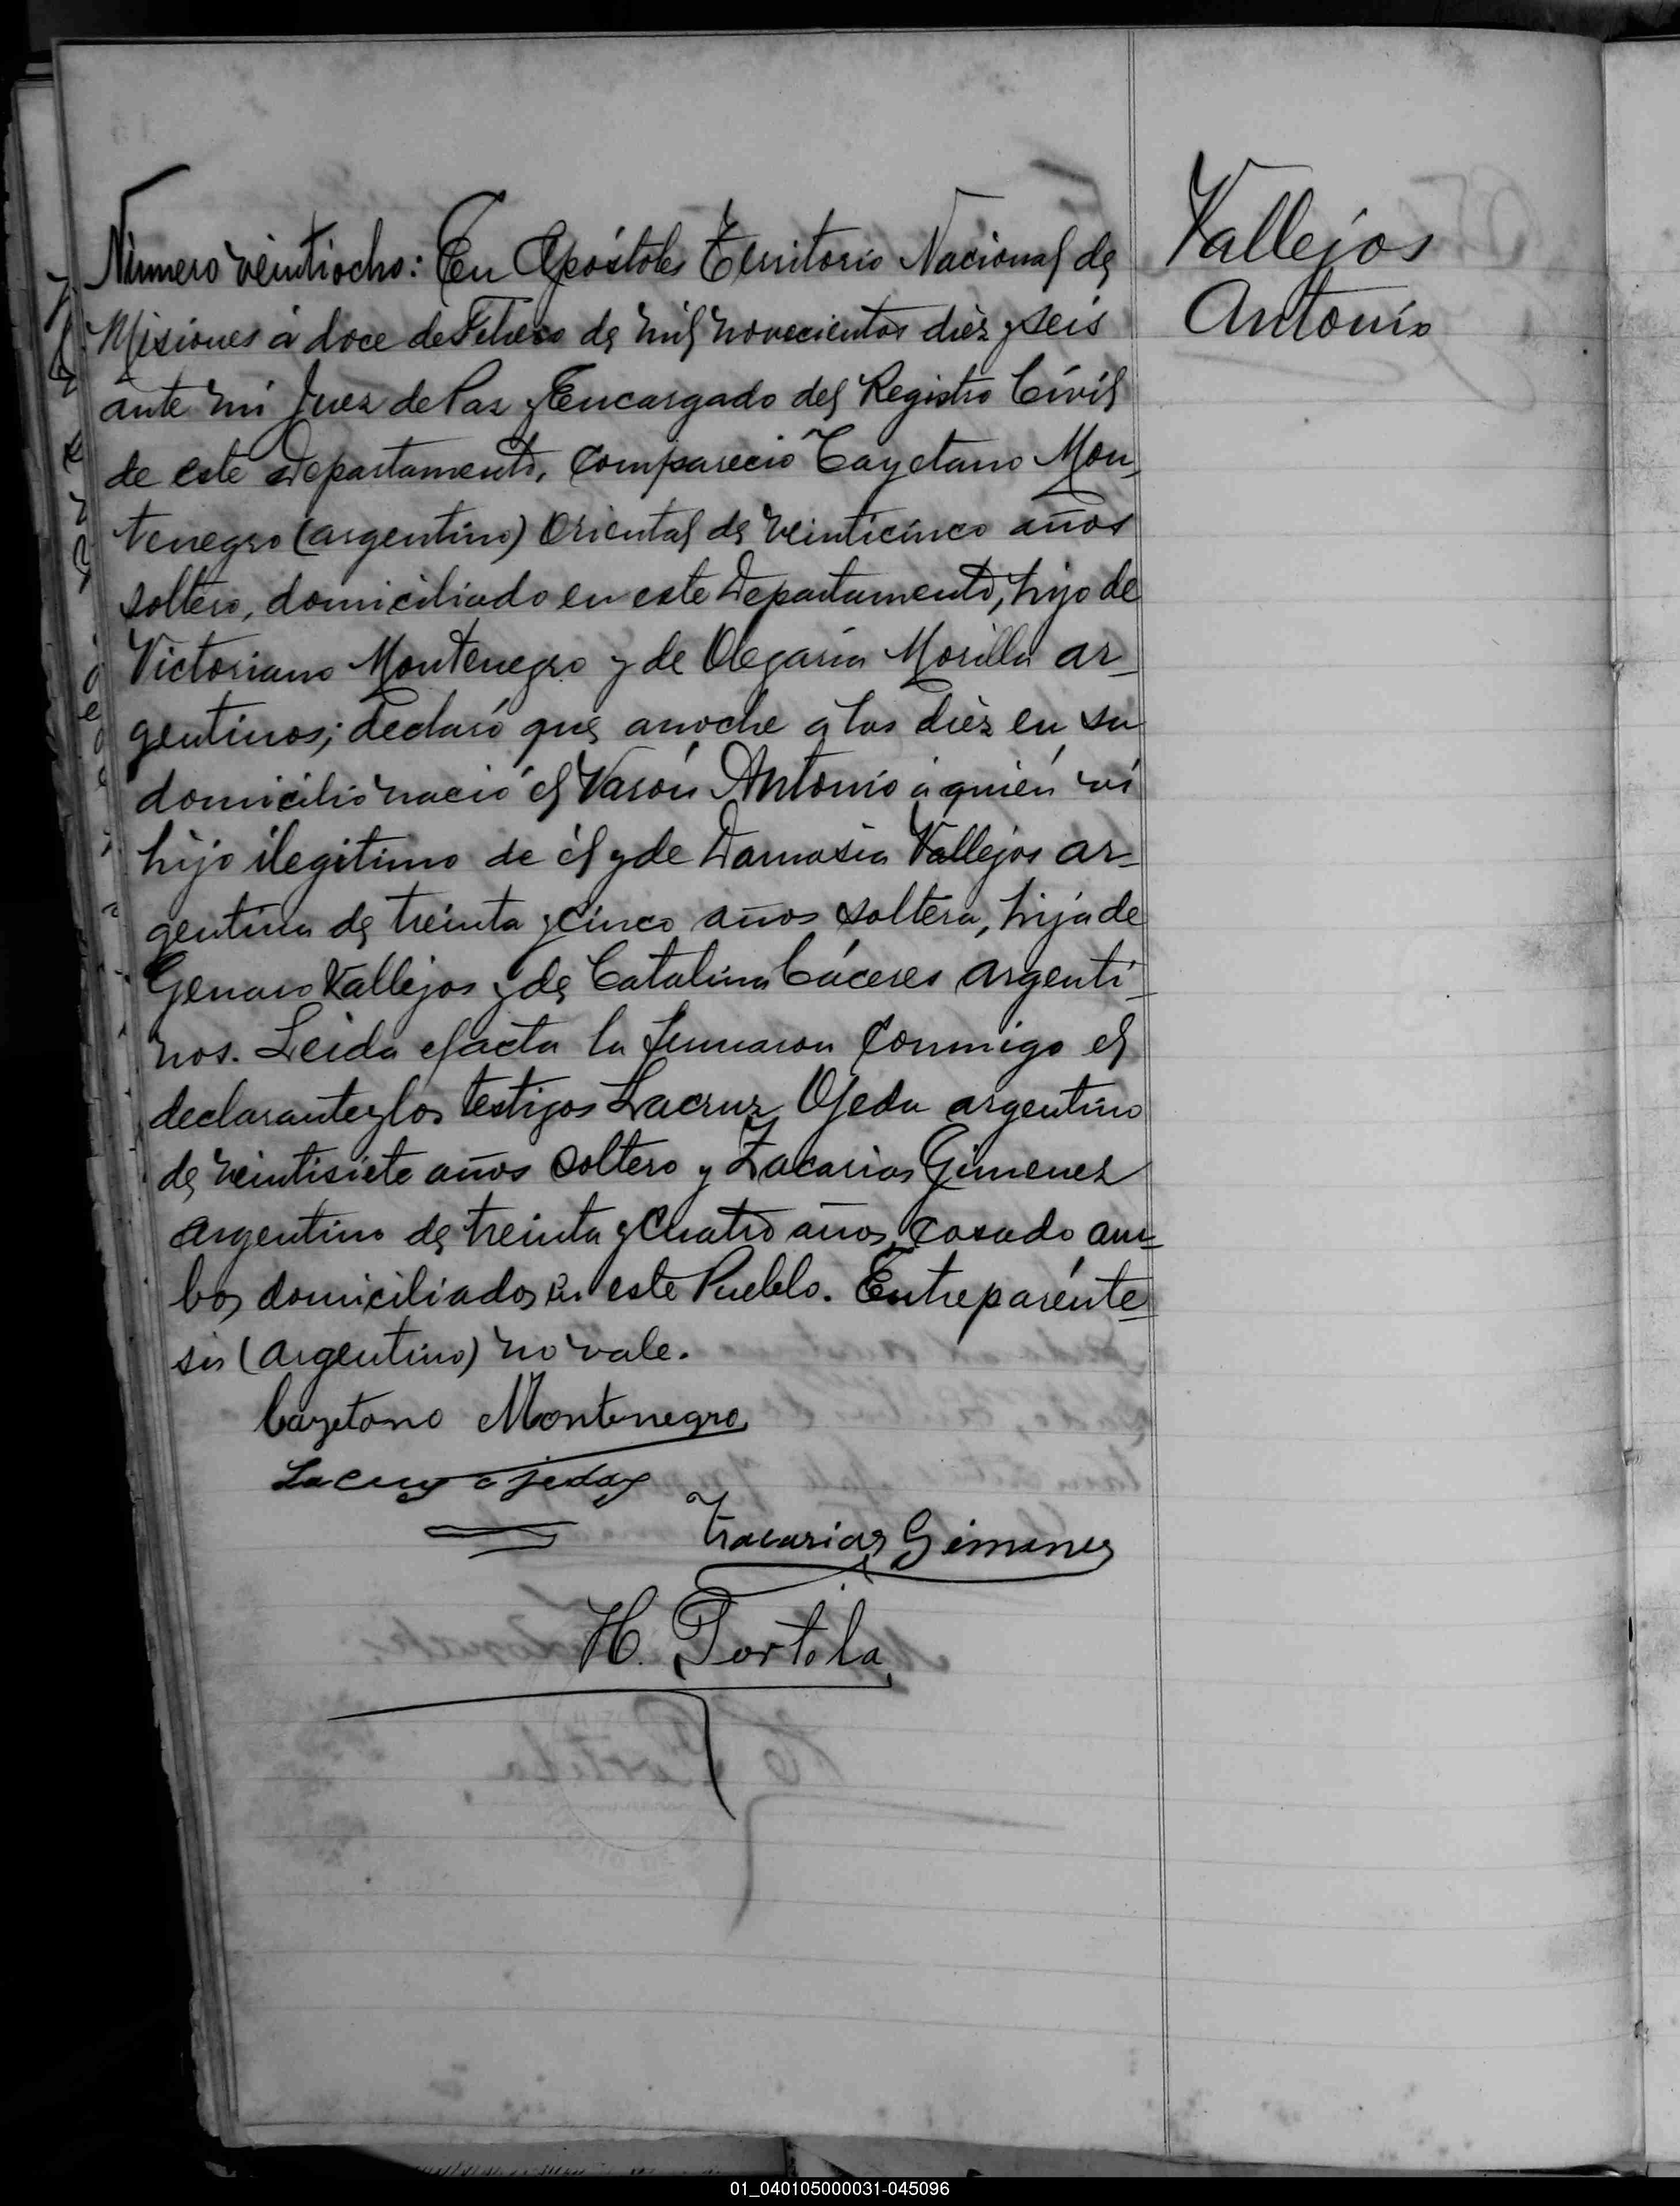 Vallejos
Antonio
Número veintiocho: En Apóstoles Territorio Nacional de
Misiones á doce de Febrero de mil novecientos diéz y seis
ante mi Juez de Paz y Encargado del Registro Civil
de este Departamento, Compareció Cayetano Mon-
tenegro (argentino) Oriental de veinticinco años
soltero, domiciliado en este Departamento, hijo de
Victoriano Montenegro y de Olegaria Morilla ar-
gentinos; declaró que anoche a las diéz en su
domicilio nació el Varón Antonio á quién ví
hijo ilegitimo de él y de Damasia Vallejos ar-
gentina de treinta y cinco años soltera, hija de
Genaro Vallejos y de Catalina Cáceres argenti-
nos. Leida el acta la firmaron conmigo el
declarante y los testigos Lacruz Ojeda argentino
de veintisiete años soltero y Zacarias Gimenez
argentino de treinta y cuatro años casado am-
bos domiciliados en este Pueblo. Entreparénte-
sis (argentino) no vale.
Cayetano Montenegro
Lacruz ojeda
Zacarias Gimenez
H. Portela
01_040105000031-045096